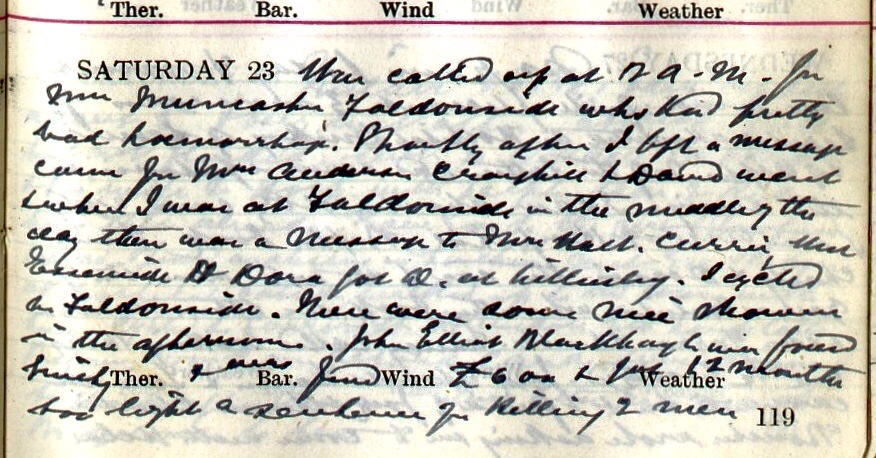 Ther. Bar. Wind Weather
SATURDAY 23 Was called up at 2 A.M. for
Mrs Muncaster Faldonside who had pretty
bad haemorrhage. Shortly after I left a message
came for Mrs Anderson Craighill & David went
when I was at Faldonside in the middle of the
day there was a message to Mrs Hall. Currie, the
Dora got D. at I cycled
to Faldonside. There were some nice showers
in the afternoon. John Elliot Blackhaugh was found
guilty & was fined £600 & got 12 months
Ther. Bar. Wind Weather
too light a sentence for killing 2 men
119